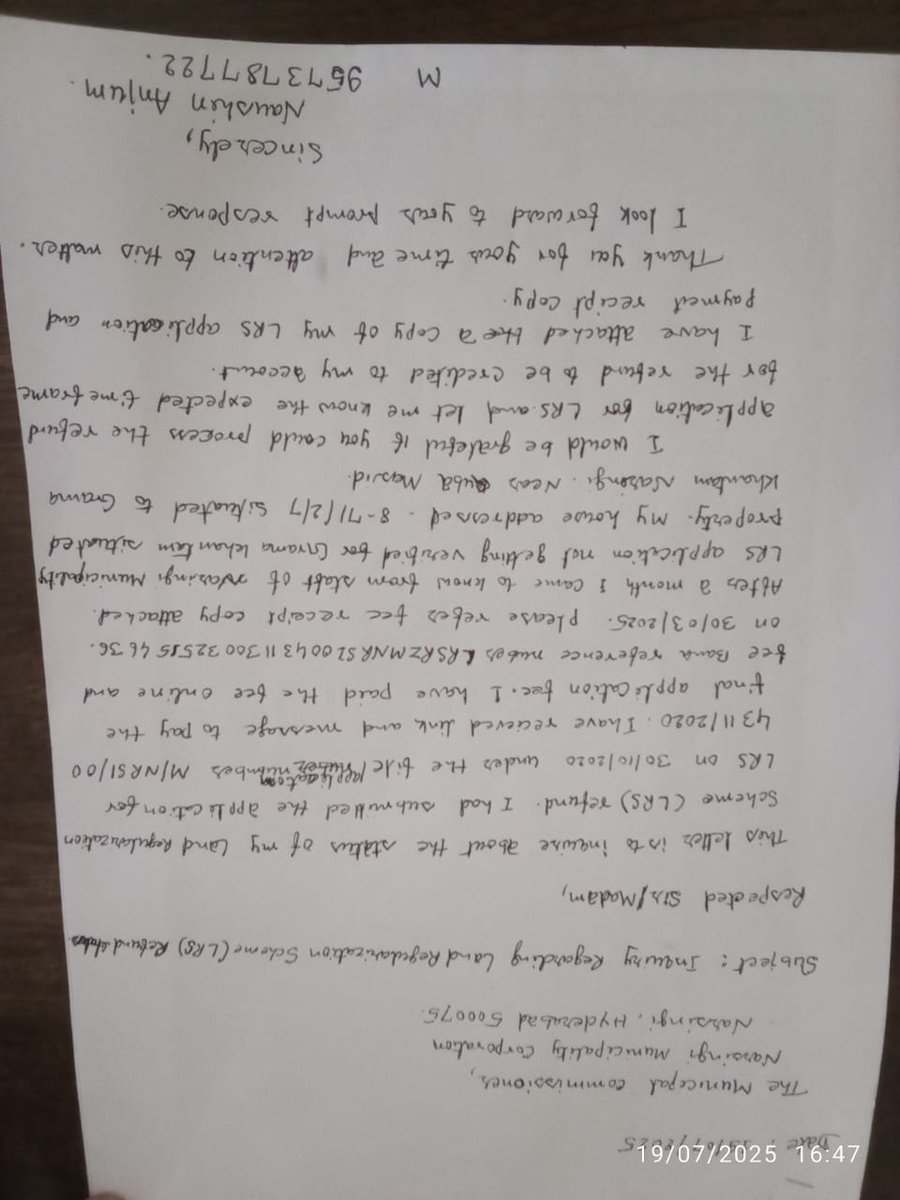 Date: 19/07/2025
The Municipal commissioner,
Narsingi Municipality Corporation
Narsingi, Hyderabad 500075.
Subject: Inquiry Regarding Land Regularization Scheme (LRS) Refund status
Respected Sir/Madam,
This letter is to inquire about the status of my Land Regularization
Scheme (LRS) refund. I had submitted the application for
LRS on 30/10/2020 under the file/application number M/NRSI/00
4311/2020. I have recieved link and message to pay the
final application fee. I have paid the fee online and
fee Bank reference nuber LRSRZMNRSI004311300325154636.
on 30/03/2025. please refer fee receipt copy attached.
After a month I came to know from staff of Narsingi Municipality
LRS application not getting verified for Grama khantam situated
property. My house addressed - 8-71/2/7 situated to Grama
Khantam Narsingi. Near Quba Masjid.
I would be grateful if you could process the refund
application for LRS and let me know the expected time frame
for the refund to be credited to my account.
I have attached a copy of my LRS application and
payment recipt copy.
Thank you for your time and attention to this matter.
I look forward to your prompt response.
Sincerely,
Naushin Anjum.
M 9573787722.
19/07/2025 16:47